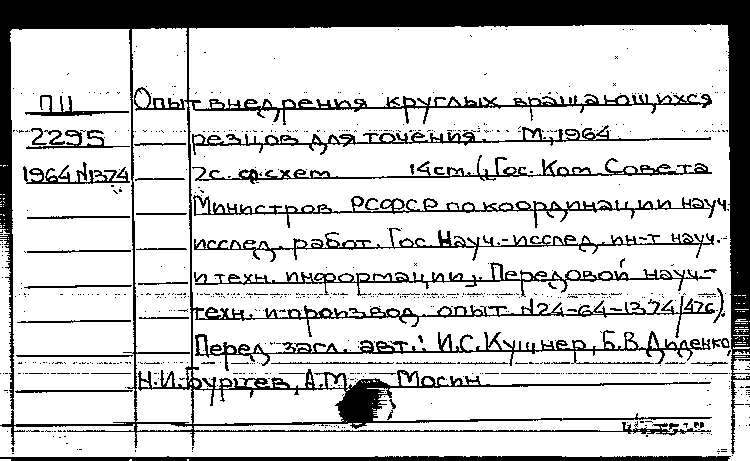 П11 Опыт внедрения круглых вращающихся
2295 резцов для точения. М., 1964
1964 N1374 2с. со схем. 14см. (Гос. Ком. Совета
Министров РСФСР по координации науч.
исслед. работ. Гос. Науч.-исслед. ин-т науч.
и техн. информации. Передовой науч.-
техн. и производ. опыт N24-64-1374/476).
Перед загл. авт.: И.С. Кушнер, Б.В. Диденко,
Н.И. Бурцев, А.М. Мосин.